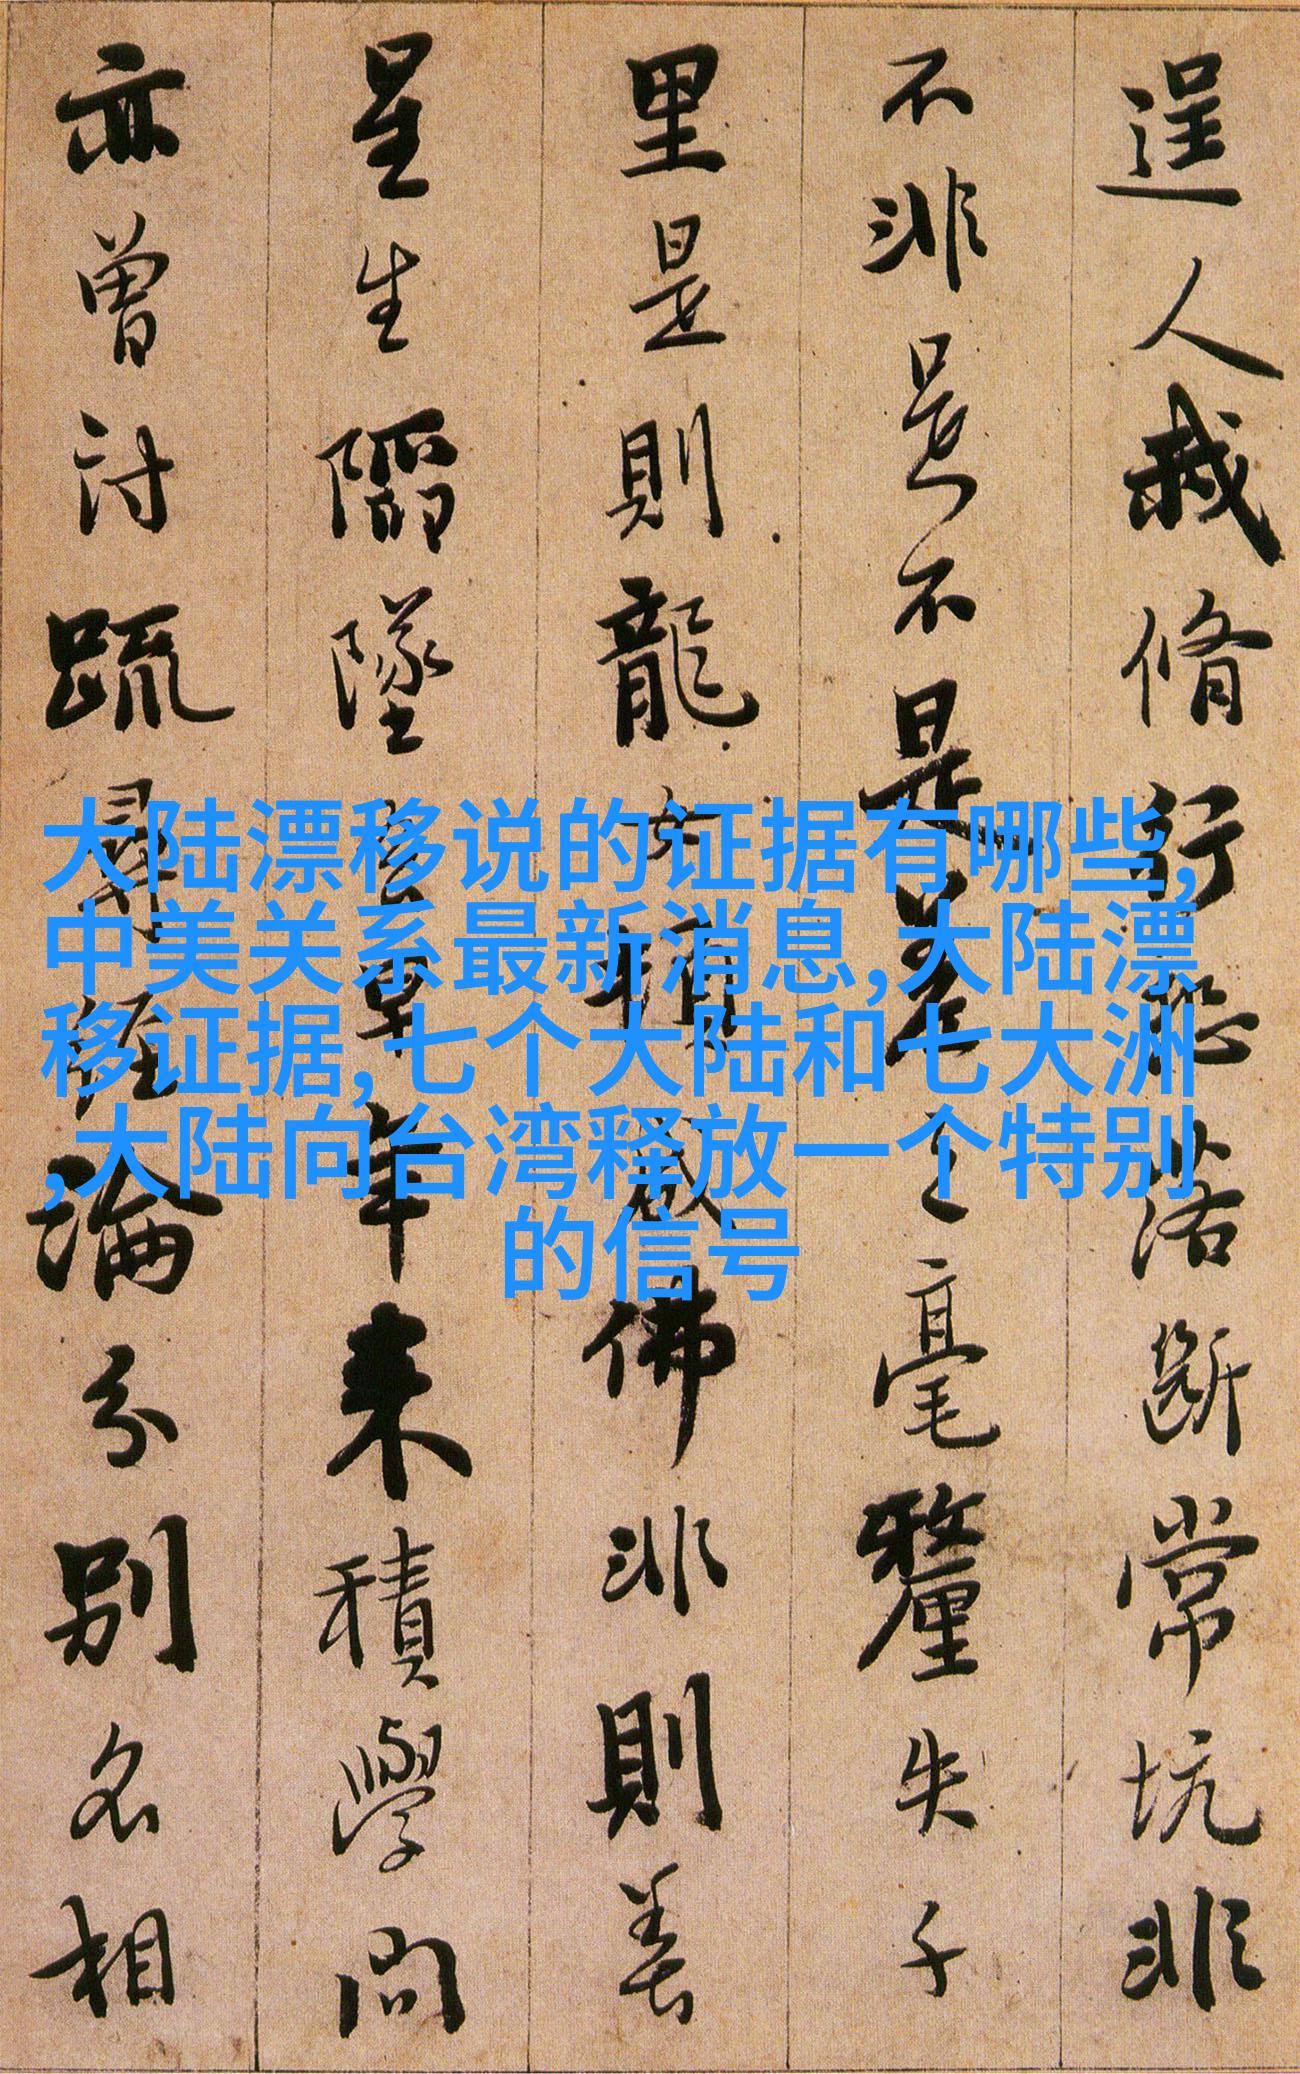 逞人我脩行恐落斷常坑非
不非是不是差之毫釐失千
里是則龍女頓成佛非則善
星生陷墜吾早年来積學問
亦曾討疏尋經論分別名相
大陆漂移说的证据有哪些,
中美关系最新消息,大陆漂
移证据,七个大陆和七大洲
,大陆向台湾释放一个特别
的信号